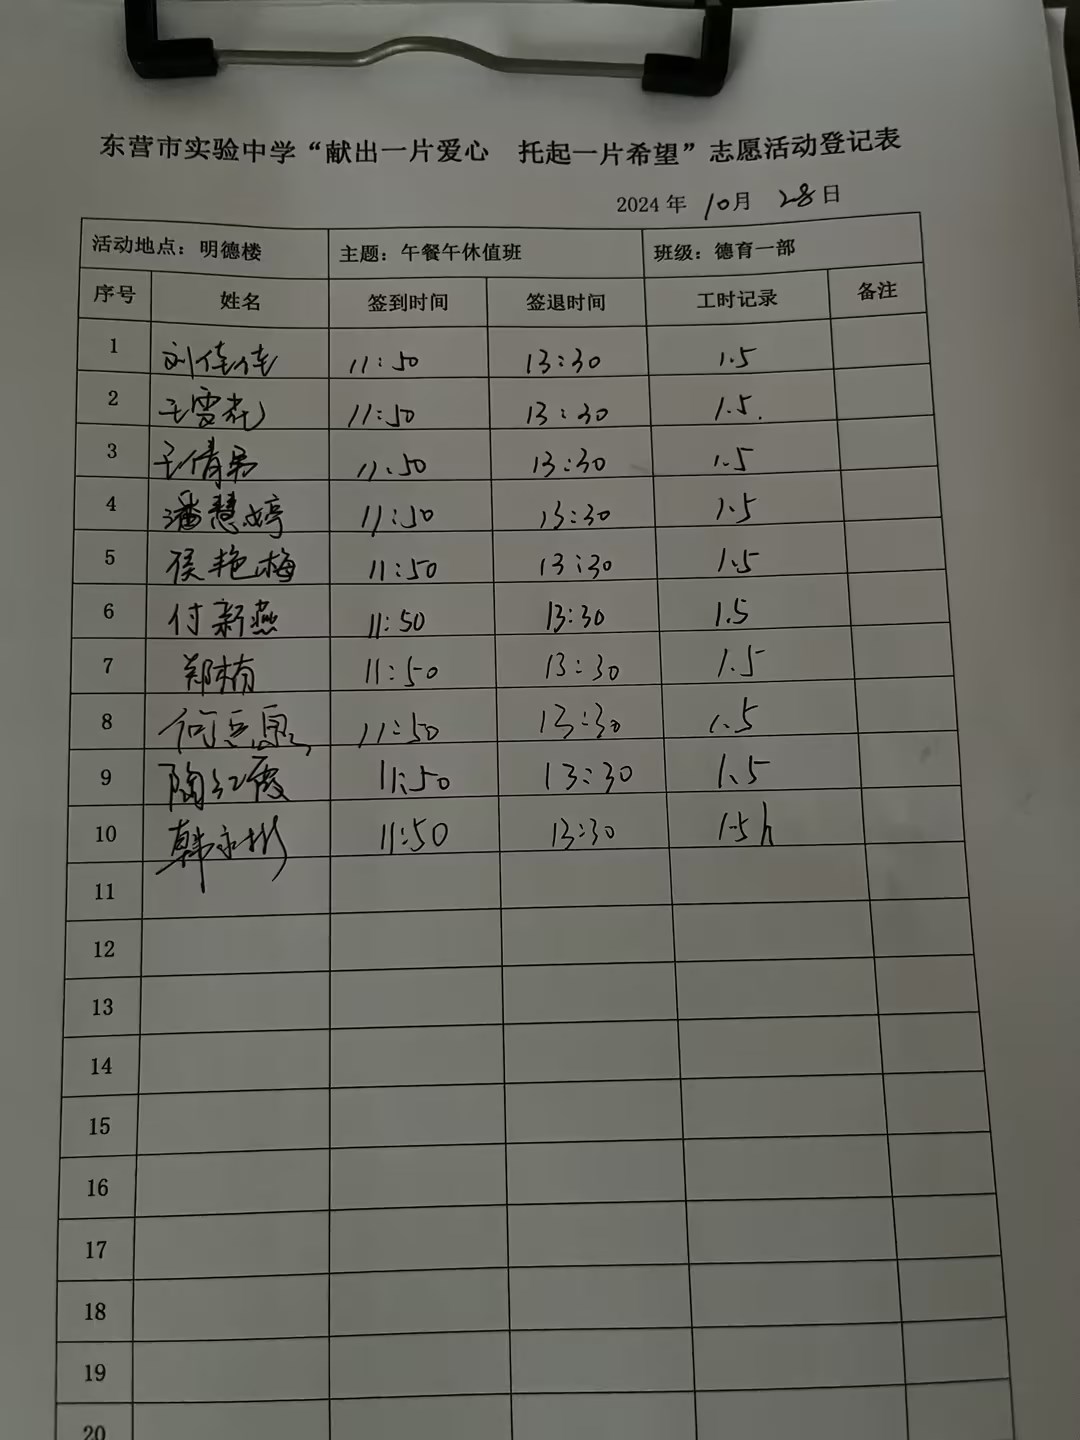 东营市实验中学“献出一片爱心 托起一片希望”志愿活动登记表
2024 年 10月 28日
活动地点：明德楼 主题：午餐午休值班 班级：德育一部
序号 姓名 签到时间 签退时间 工时记录 备注
1 刘佳佳 11:50 13:30 1.5
2 王雪花 11:50 13:30 1.5.
3 王倩 11:50 13:30 1.5
4 潘慧婷 11:50 13:30 1.5
5 侯艳梅 11:50 13:30 1.5
6 付新燕 11:50 13:30 1.5
7 郑楠 11:50 13:30 1.5
8 何 11:50 13:30 1.5
9 陶红霞 11:50 13:30 1.5
10 韩永彬 11:50 13:30 1.5h
11
12
13
14
15
16
17
18
19
20